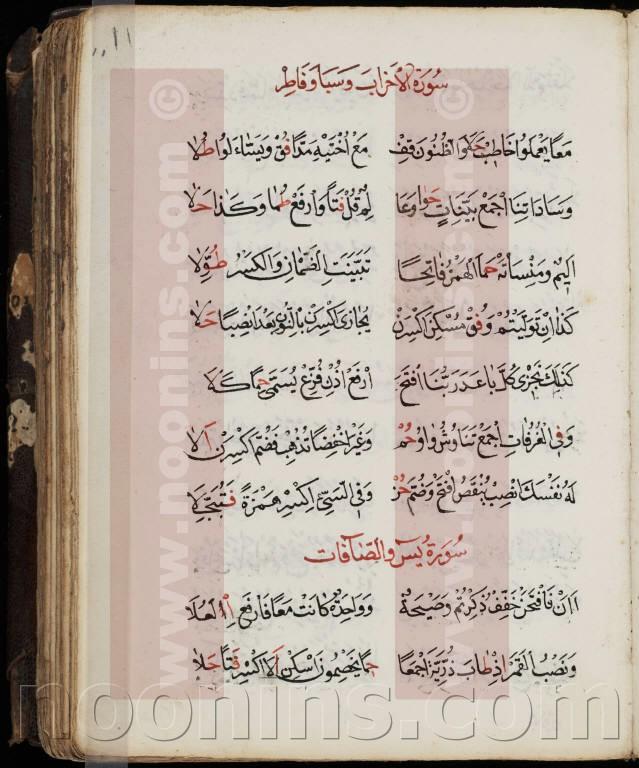 سورة الأحزاب وسبا وفاطر
معا يعملوا خاطب حكوا الظنون قف مع اختيه مدا فق ويساءلوا طلا
وساداتنا اجمع بينات حوا وعا لم قل فتا وارفع طما وكذا حلا
اليم ومنساته حما الهمز فاتحا تبينت الضمان والكسر طولا
كذا ان توليتم وفق مسكن اكسرن يجازى اكسرن بالنون بعد انصبا حلا
كذلك نجزى كل باعد ربنا افتح ارفع اذن فزع يسمى حما كلا
وفي الغرفات اجمع تناوش واو حم وغير اخفضا تذهب فضم اكسرن الا
له نفسك انصب ينقص افتح وضم حز وفي السيئ اكسر همزة فتبجلا
سورة يس والصافات
اان فافتحن خفف ذكرتم وصيحة وواحدة كانت معا فارفع العلا
ونصب القمر اذ طاب ذرية اجمعا حما يخصمون اسكن الا اكسر فتا حلا
www.noonins.com
noonins.com